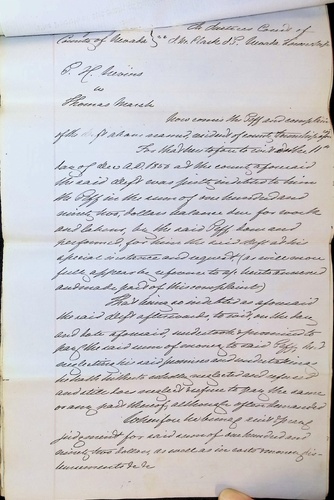 In Justices Court of
County of Nevada } ss
vs
Thomas Marsh
Now comes the Plff and complains
of the deft above named,
For that heretofore to wit on the 11th
day of Dec A.D. 1856 at the county aforesaid
the said deft was justly indebted to him
the Plff in the sum of one hundred and
ninety two dollars balance due for work
and labor, by the said Plff done and
performed for him the said deft at his
special instance and request (as will more
fully appear by reference to a/c hereto annexed
and made part of this complaint)
That being so indebted as aforesaid
the said deft afterwards, to wit, on the day
and date aforesaid, undertook & promised to
pay the said sum of money to said Plff, but
neglecting his said promises and undertakings
hath hitherto wholly neglected and refused
and still does neglect & refuse to pay the same
or any part thereof, although often demanded
Wherefore he brings suit & prays
judgement for said sum of one hundred and
ninety two dollars, as well as in costs
bursements &c &c